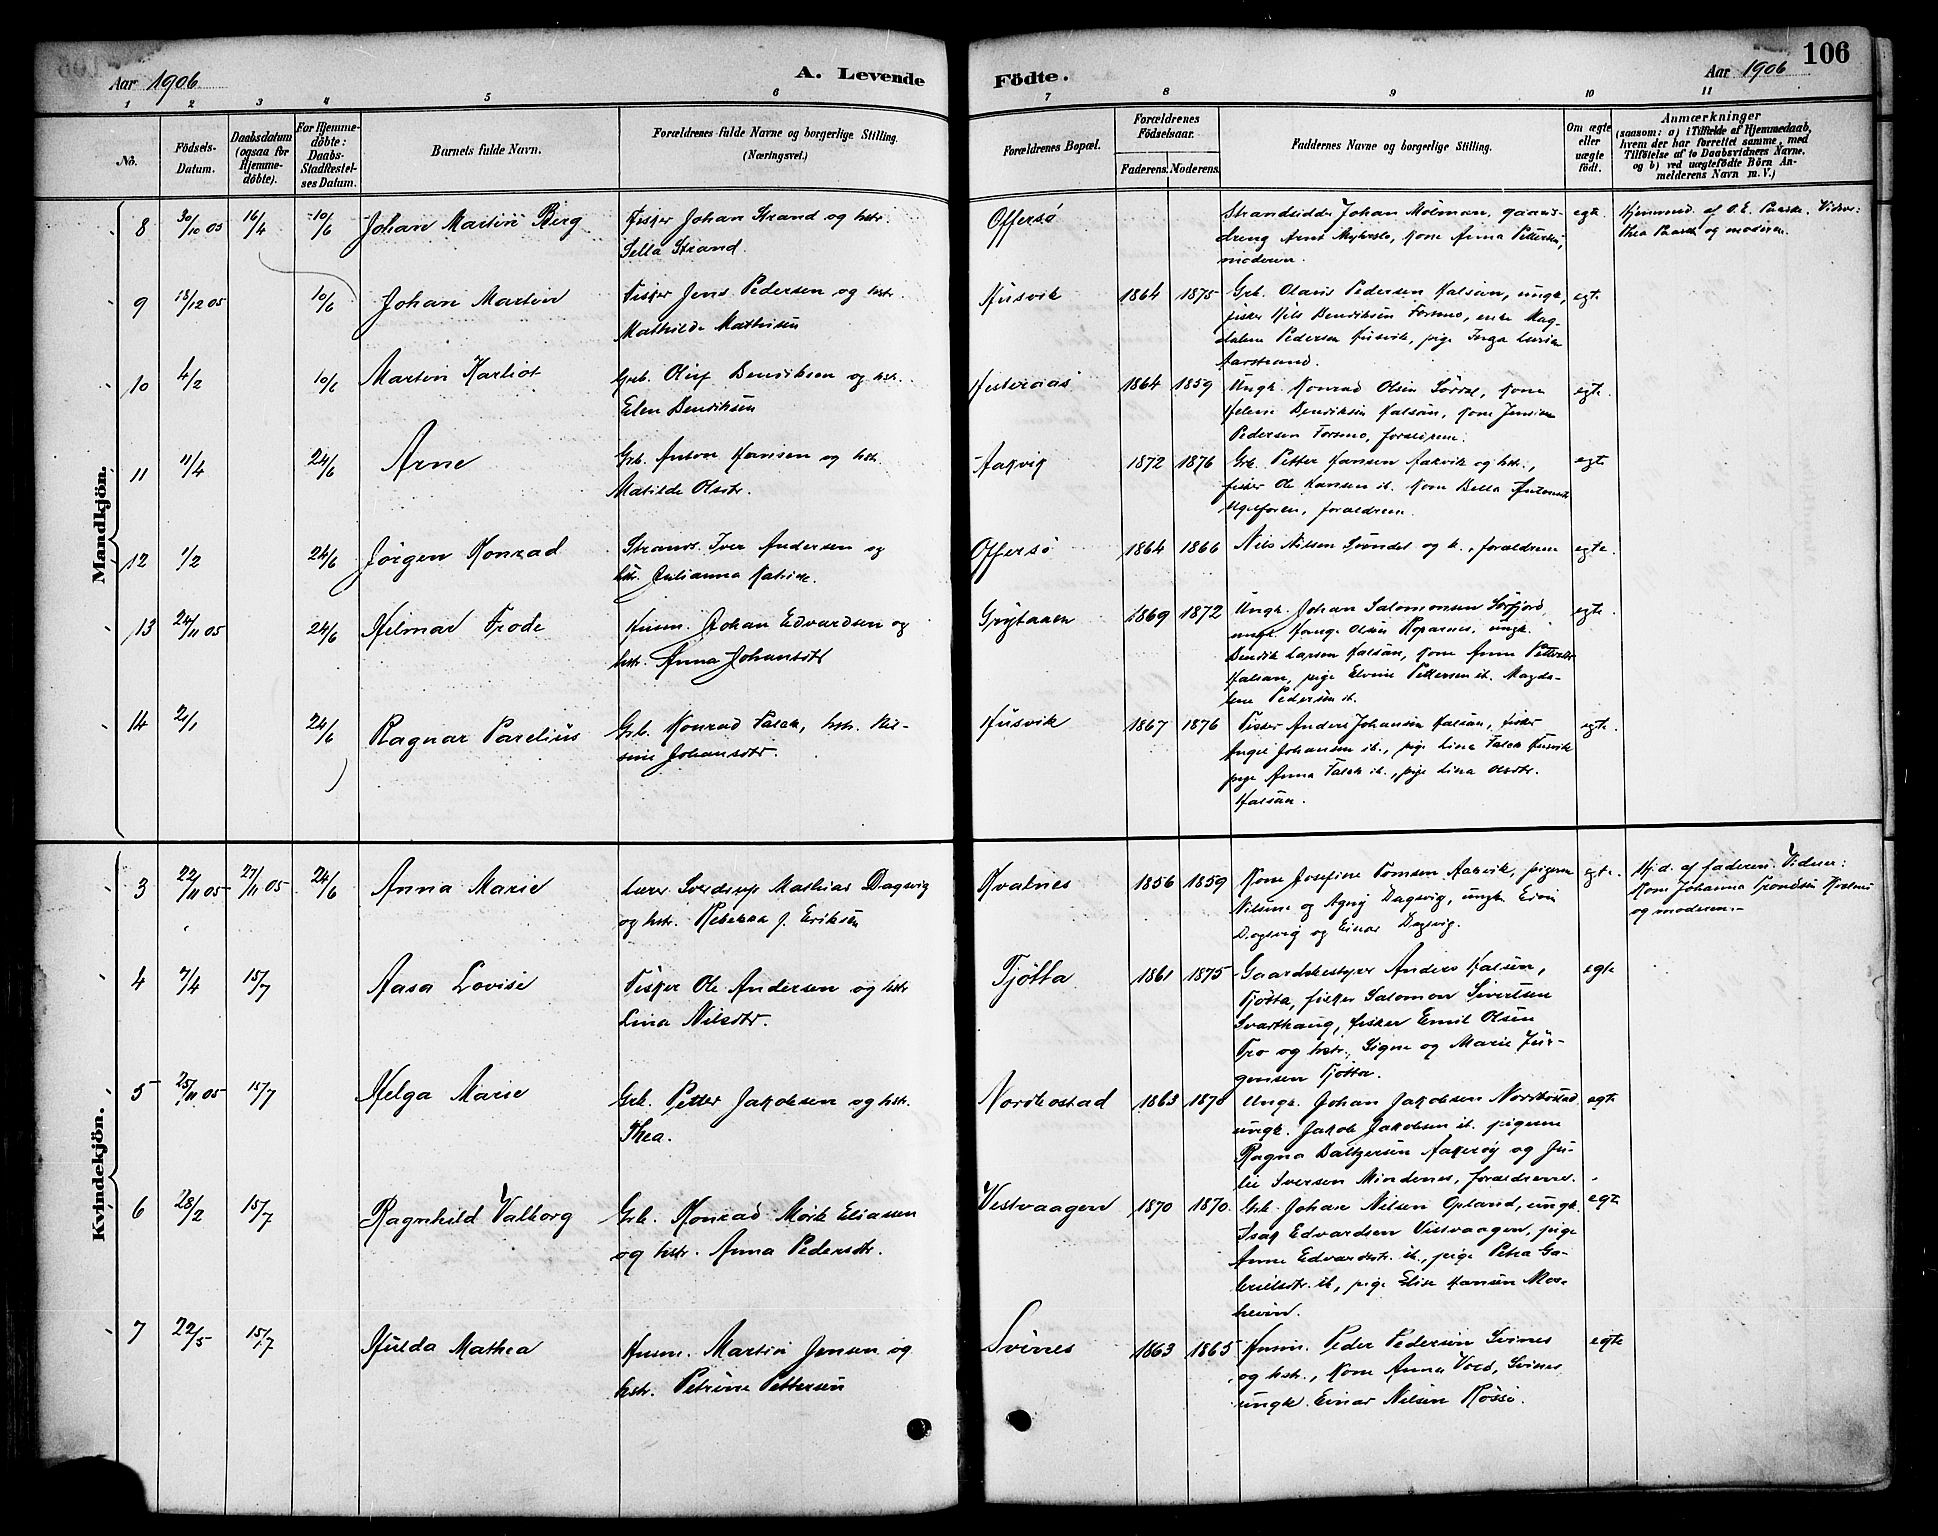 106
Aar 1906
A. Levende
Födte.
Aar 1906
1 2 3 4 5 6 7 8 9 10 11
No.
Födsels-
Datum.
Daabsdatum
(ogsaa for
Hjemme-
döbte).
For Hjemme-
döbte:
Daabs-
Stadfæstel-
ses Datum.
Barnets fulde Navn.
Forældrenes fulde Navne og borgerlige Stilling.
(Næringsvei.)
Forældrenes Bopæl.
Forældrenes
Födselsaar.
Faderens. Moderens.
Faddernes Navne og borgerlige Stilling.
Om ægte
eller
uægte
födt.
Anmærkninger
(saasom: a) i Tilfælde af Hjemmedaab,
hvem der har forrettet samme, med
Tilföielse af to Daabsvidners Navne,
og b) ved uægtefödte Börn An-
melderens Navn m. V.)
Mandkjön.
8 30/10 05 16/4 10/6 Johan Martin Berg
Fisker Johan Strand og hstr.
Sella Strand.
Offersø
Strandsidder Johan Molman, gaards-
dreng Arnt, Kone Anna Pettersen,
moderen.
egte.
Hjemmed. af O. E. Paaske. Vidner:
Thea Paaske og moderen.
9 18/12 05 10/6 Johan Martin
Fisker Jens Pedersen og hstr.
Mathilde Mathisen
Husvik 1864 1875
Grb. Olaris Pedersen Kalsaen, ungk.
fisker Nils Bendiksen Forsmo, enke Mag-
dalene Pedersen Husvik, pige Inga
Aarstrand.
egte
10 4/2 10/6 Martin Karliot
Grb. Oluf Bendiksen og hstr.
Elen Bendiksen
Hesteraas 1864 1859
Ungk. Konrad Olsen, Kone
Helene Bendiksen Halsaan, Kone Jensine
Pedersen Forsmo, forældrene.
egte.
11 11/4 24/6 Arne
Grb. Anton Hansen og hstr.
Matilde Olsdtr.
Aakvik 1872 1876
Grb. Petter Hansen Aakvik og hstr.,
fisker Ole Hansen ib. Kone Bella
forældrene.
egte
12 1/2 24/6 Jörgen Konrad
Strands. Iver Andersen og
hstr. Julianna Katrine.
Offersø 1864 1866
Nils Nilsen og h., forældrene
egte.
13 24/11 05 24/6 Hilmar Frode
Husm. Johan Edvardsen og
hstr. Anna Johansdtr
Grytaaen 1869 1872
Ungk. Johan Salomonsen Sørfjord,
ungk. Hauge Olsen, ungk.
Bendik Larsen Halsaan, Kone Anne
Halsan, pige Elvine Pettersen ib. Magda-
lene Pedersen ib.
egte.
14 2/1 24/6 Ragnar Parelius
Grb. Konrad Falch, hstr. Nil-
sine Johansdtr.
Husvik 1867 1876
Fisker Anders Johansen Halsaan, fisker
Angel Johansen ib., pige Lina Falch Husvik
pige Anna Falch ib., pige Lina Olsdtr.
Halsaan.
egte.
Kvindekjön.
3 22/11 05 27/11 05 24/6 Anna Marie
Lærer Sverdrup Mathias Dagsvig
og hstr. Rebekka J. Eriksen
Kvalnes 1856 1859
Kone Josefine Tomsen Aakvik, pigerne
Nilsine og Agny Dagsvig, ungk. Edvin
Dagsvig og Einar Dagsvig.
egte.
Hj.d. af faderen. Vidner:
Kone Johanna Trondsen
og moderen.
4 7/4 15/7 Aasa Lovise
Fisker Ole Andersen og hstr
Lina Nilsdtr.
Tjøtta 1861 1875
Gaardsbestyrer Anders Halsen,
Tjøtta, fisker Salomon Sivertsen
Svarthaug, fisker Emil Olsen
Tro og hstr., Signe og Marie Jür-
gensen Tjøtta.
egte
5 25/11 05 15/7 Helga Marie
Grb. Petter Jakobsen og hstr.
Thea.
Nordbostad 1863 1870
Ungk. Johan Jakobsen Nordbostad
ungk. Jakob Jakobsen ib. pigerne
Ragna Baltzersen Aakerøy og Ju-
lie Iversen Mindenes, forældrene.
egte
6 28/2 15/7 Ragnhild Valborg
Grb. Konrad Mörk Eliassen
og hstr. Anna Pedersdtr.
Vestvaagen 1870 1870
Grb. Johan Nilsen Opland, ungk.
Isak Edvardsen Vestvaagen, pige
Anne Edvardsdtr. ib., pige Petra Ga-
brielsdtr. ib, pige Elise Hansen Mos-
hevin.
egte
7 22/5 15/7 Hulda Mathea
Husm. Martin Jensen og
hstr. Petrine Pettersen
Svines 1863 1865
Husm. Peder Pedersen Svines
og hstr., Kone Anna, Svines,
ungk. Einar Nilsen Røssø.
egte